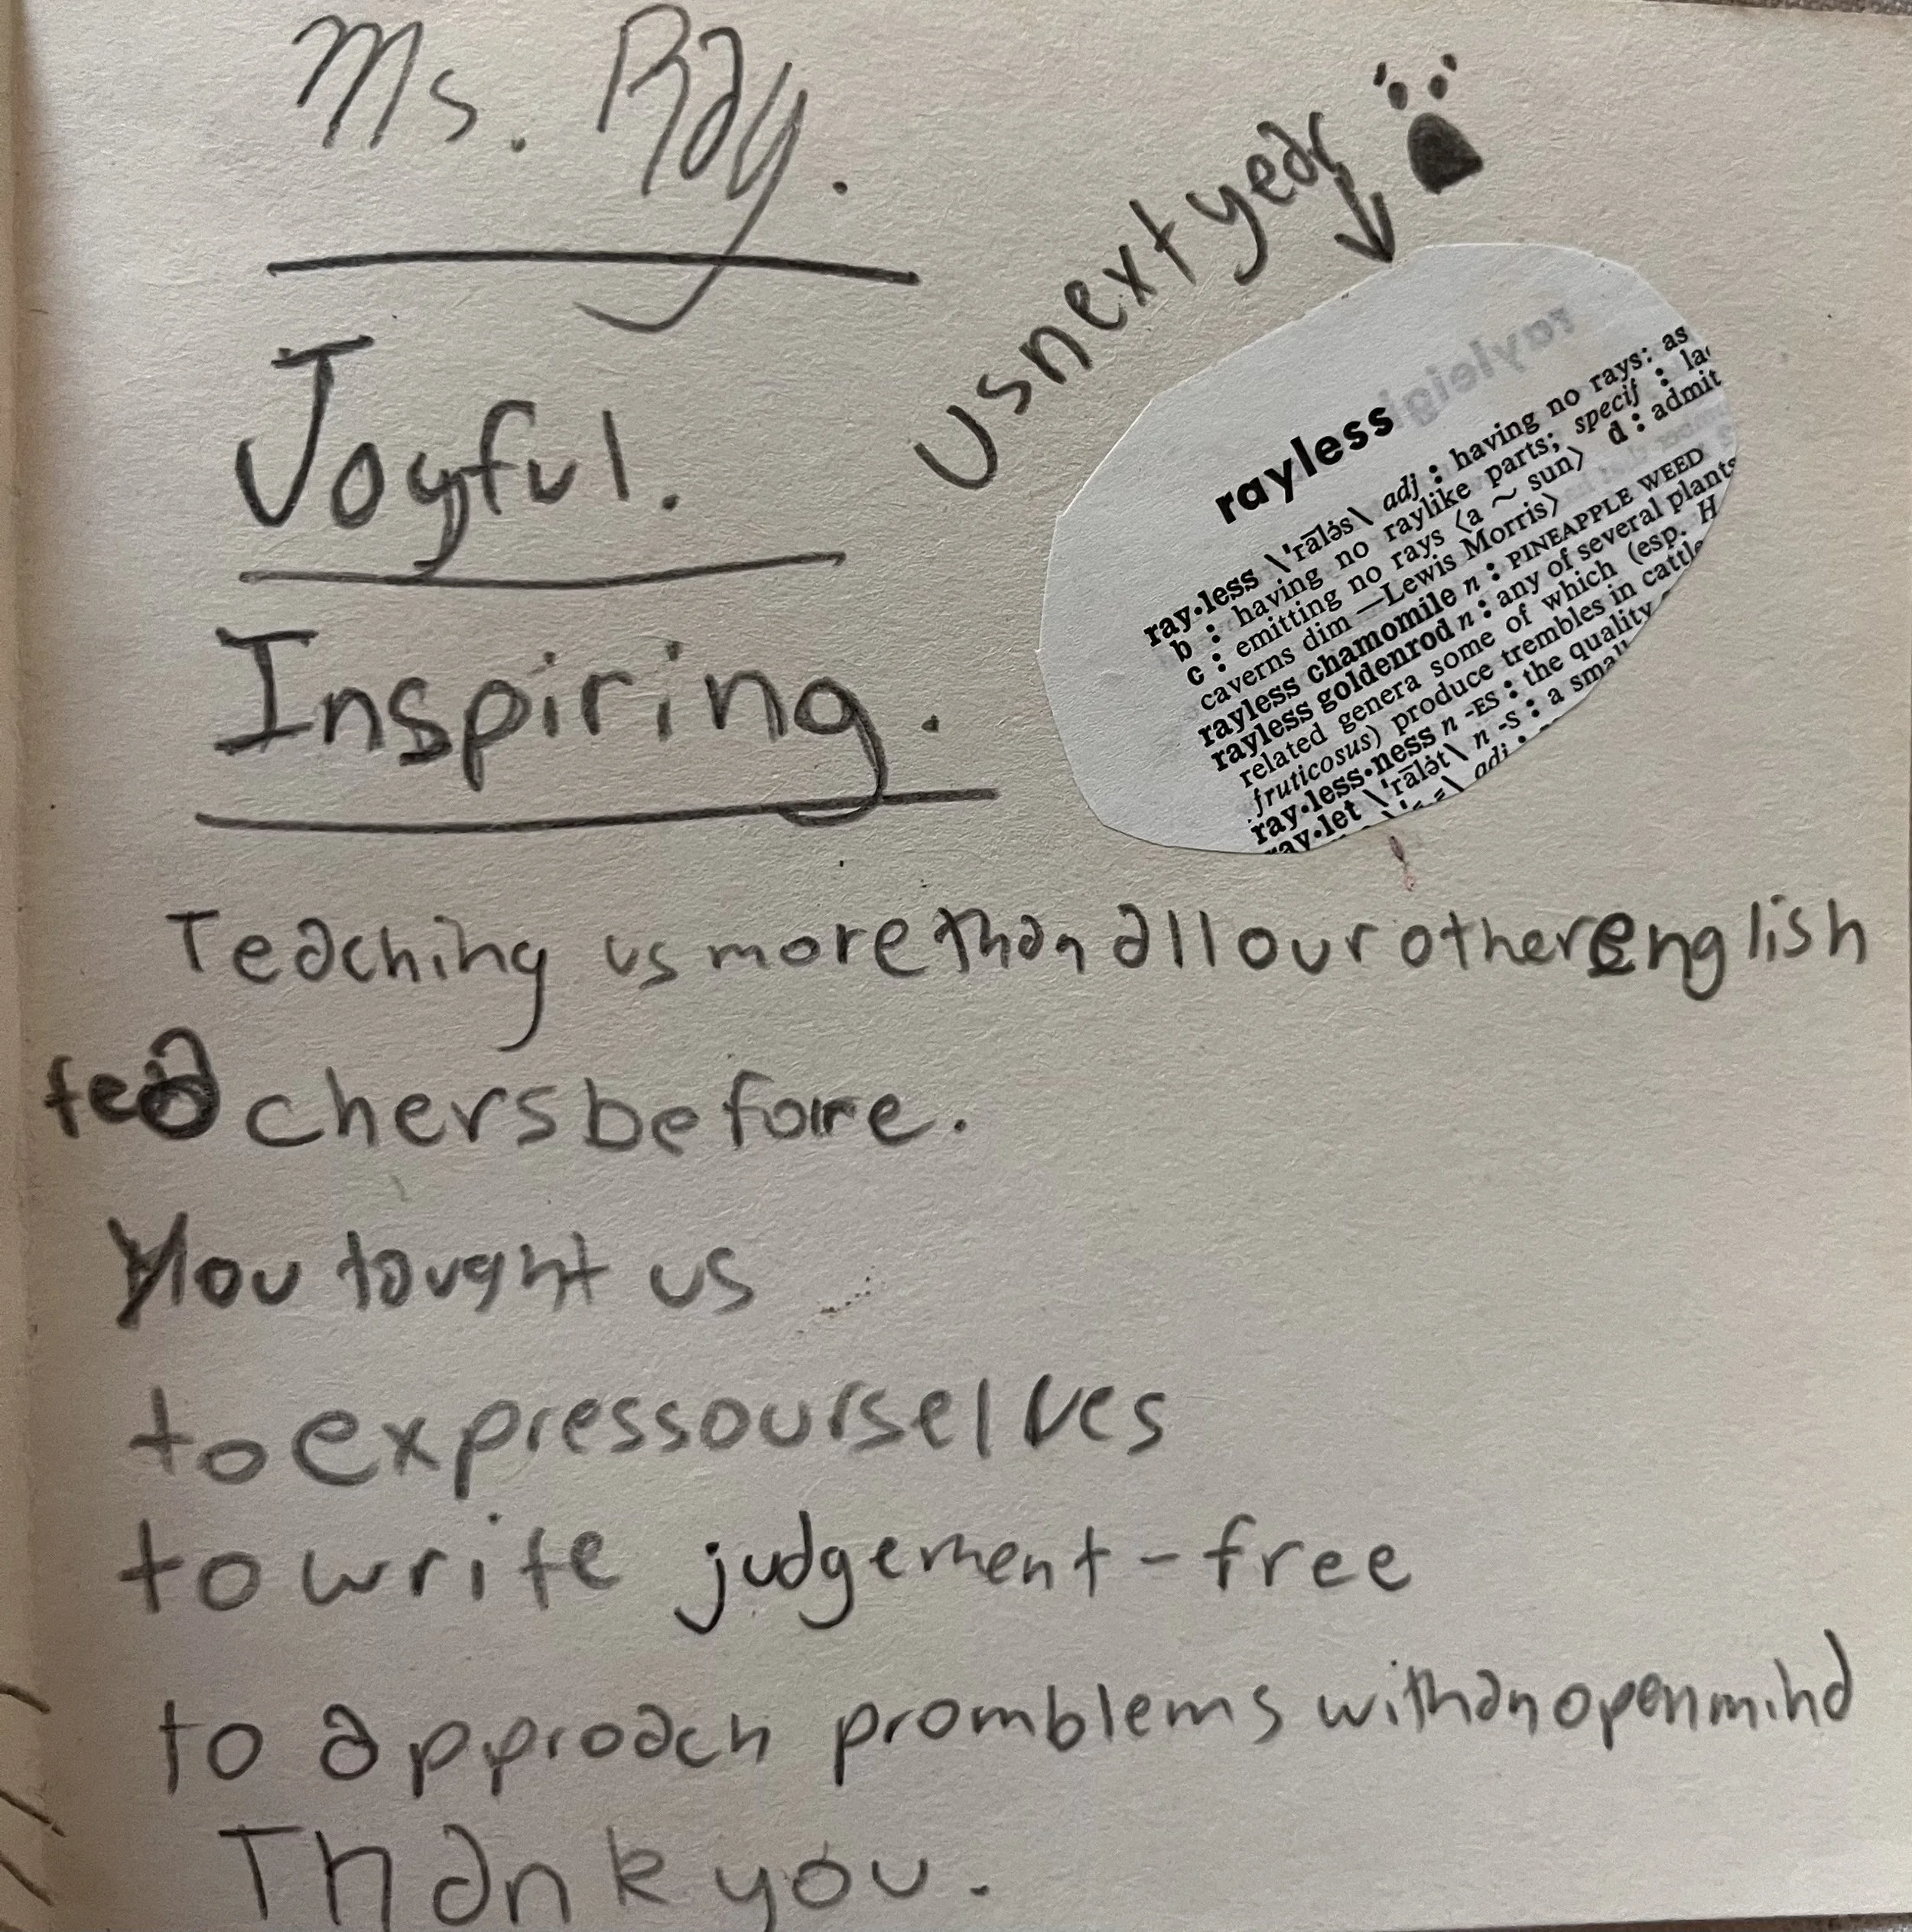 Ms. Ray.
Joyful.
Inspiring.
us next year
rayleigh
rayless
ray•less \ˈrālə̇s\ adj : having no rays: as
b : having no raylike parts; specif : la
c : emitting no rays ⟨a ~ sun⟩ d : admit
caverns dim —Lewis Morris⟩
rayless chamomile n : PINEAPPLE WEED
rayless goldenrod n : any of several plants
related genera some of which (esp. H
fruticosus) produce trembles in cattle
ray•less•ness n -ES : the quality
ray•let \ˈrālə̇t\ n -s : a small
adj :
Teaching us more than all our other english
teachers before.
You taught us
to express ourselves
to write judgement-free
to approach promblems with an open mind
Thank you.